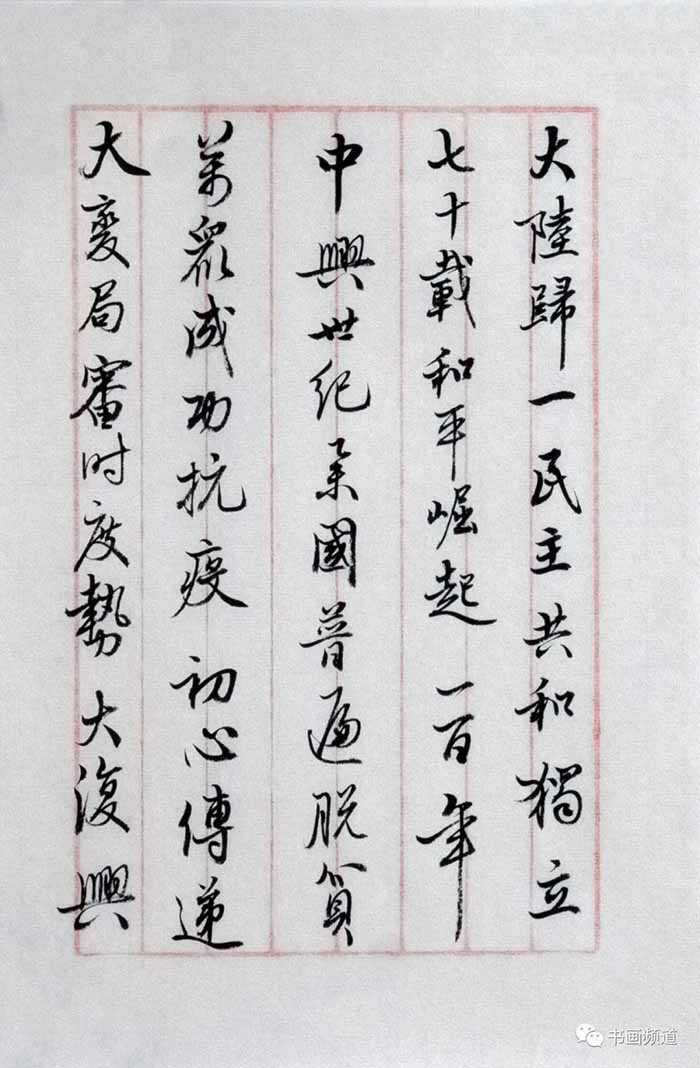 大陸歸一民主共和獨立
七十載和平崛起一百年
中興世紀舉國普遍脱貧
萬眾成功抗疫初心傳遞
大變局審时度勢大復興
书画频道